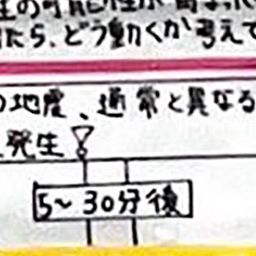 生の可能性が高まった
たら、どう動くか考えて
の地震、通常と異なる
発生
5～30分後